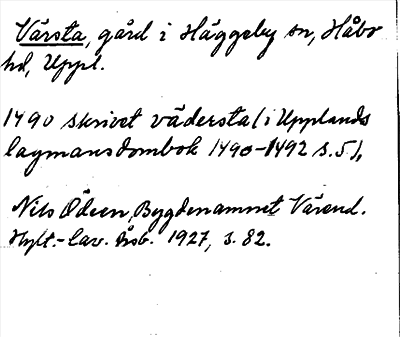 Värsta, gård i Häggeby sn, Håbo
hd, Uppl.
1490 skrivet vädersta (i Upplands
lagmansdombok 1490-1492 s. 5),
Nils Ödeen, Bygdenamnet Värend.
Hylt.-Cav. årsb. 1927, s. 82.